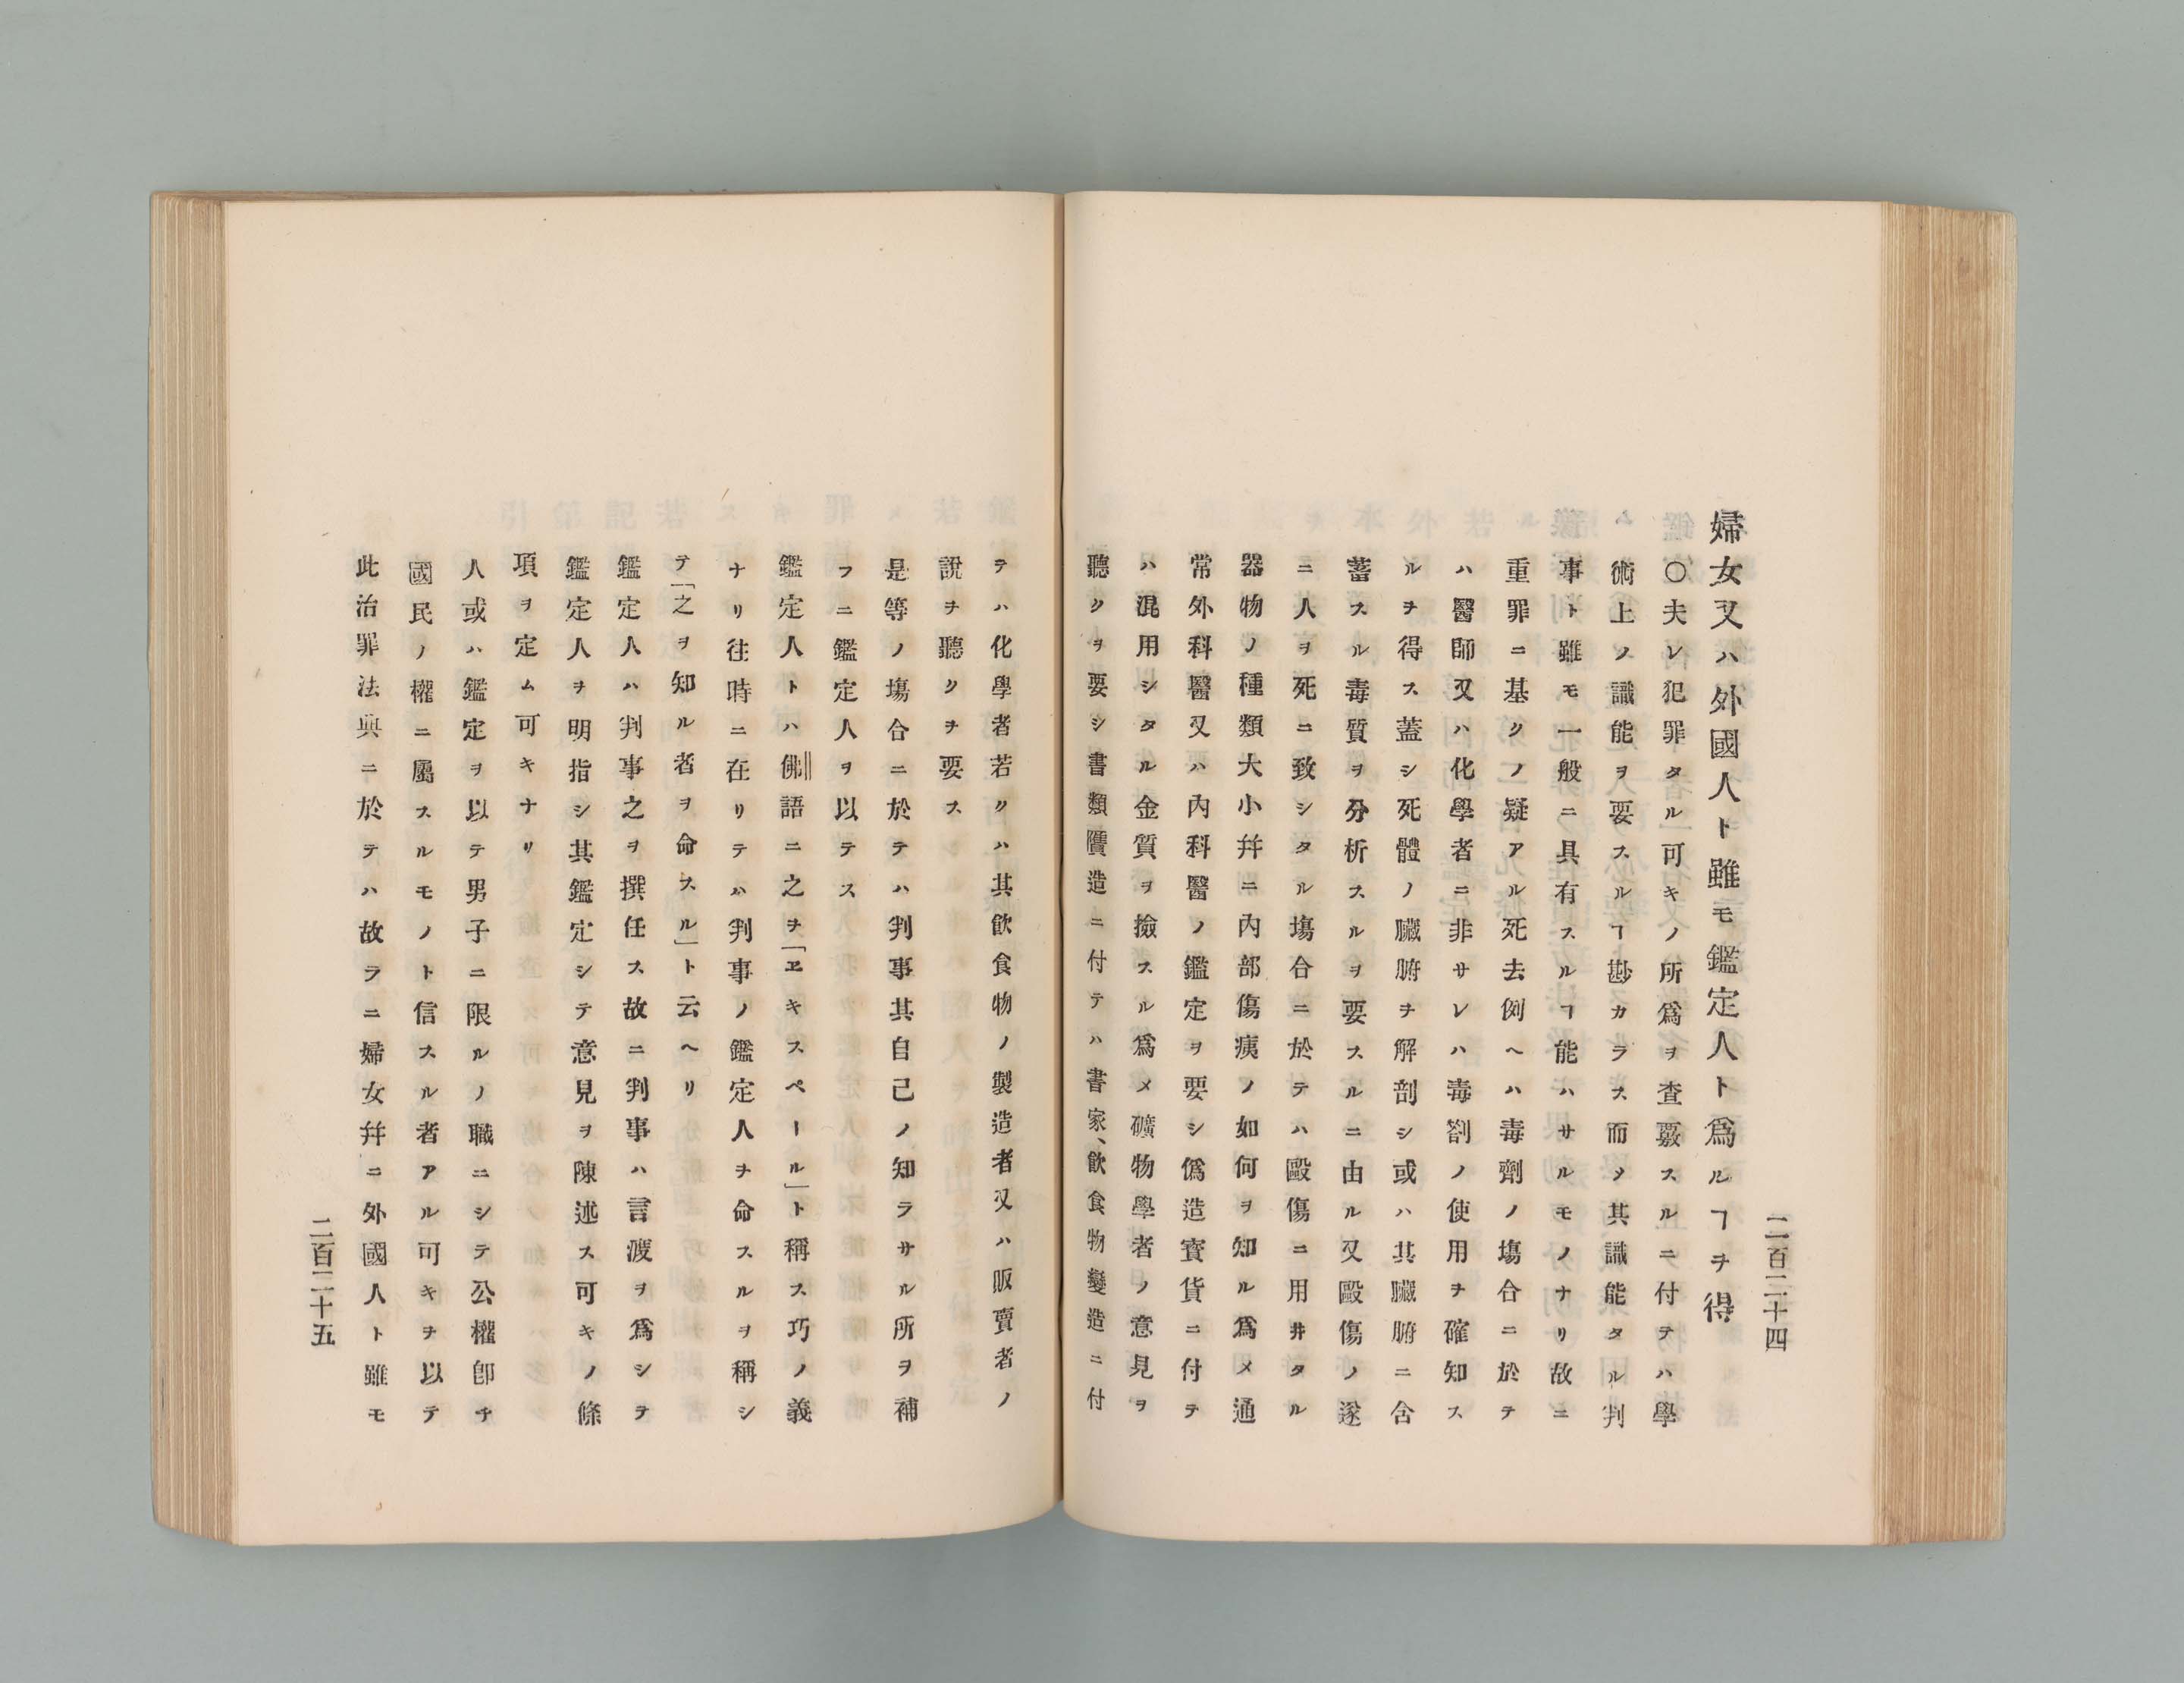 二百二十四
婦女又ハ外國人ト雖モ鑑定人ト爲ルヿヲ得
〇夫レ犯罪タル可キノ所爲ヲ査覈スルニ付テハ學
術上ノ識能ヲ要スルヿ尠カラス而〆其識能タル判
事ト雖モ一般ニ具有スルヿ能ハサルモノナリ故ニ
重罪ニ基クノ疑アル死去例ヘハ毒劑ノ塲合ニ於テ
ハ醫師又ハ化學者ニ非サレハ毒劑ノ使用ヲ確知ス
ルヲ得ス蓋シ死體ノ臟腑ヲ解剖シ或ハ其臟腑ニ含
蓄スル毒質ヲ分析スルヲ要スルニ由ル又毆傷ノ遂
ニ人ヲ死ニ致シタル塲合ニ於テハ毆傷ニ用井タル
器物ノ種類大小幷ニ內部傷痍ノ如何ヲ知ル爲メ通
常外科醫又ハ內科醫ノ鑑定ヲ要シ僞造寳貨ニ付テ
ハ混用シタル金質ヲ撿スル爲メ礦物學者ノ意見ヲ
聽クヲ要シ書類贋造ニ付テハ書家、飮食物變造ニ付
テハ化學者若クハ其飮食物ノ製造者又ハ販賣者ノ
說ヲ聽クヲ要ス
是等ノ塲合ニ於テハ判事其自己ノ知ラサル所ヲ補
フニ鑑定人ヲ以テス
鑑定人トハ佛語ニ之ヲ「ヱキスペール」ト稱ス巧ノ義
ナリ往時ニ在リテハ判事ノ鑑定人ヲ命スルヲ稱シ
テ「之ヲ知ル者ヲ命スル」ト云ヘリ
鑑定人ハ判事之ヲ撰任ス故ニ判事ハ言渡ヲ爲シテ
鑑定人ヲ明指シ其鑑定シテ意見ヲ陳述ス可キノ條
項ヲ定ム可キナリ
人或ハ鑑定ヲ以テ男子ニ限ルノ職ニシテ公權卽チ
國民ノ權ニ屬スルモノト信スル者アル可キヲ以テ
此治罪法典ニ於テハ故ラニ婦女幷ニ外國人ト雖モ
二百二十五